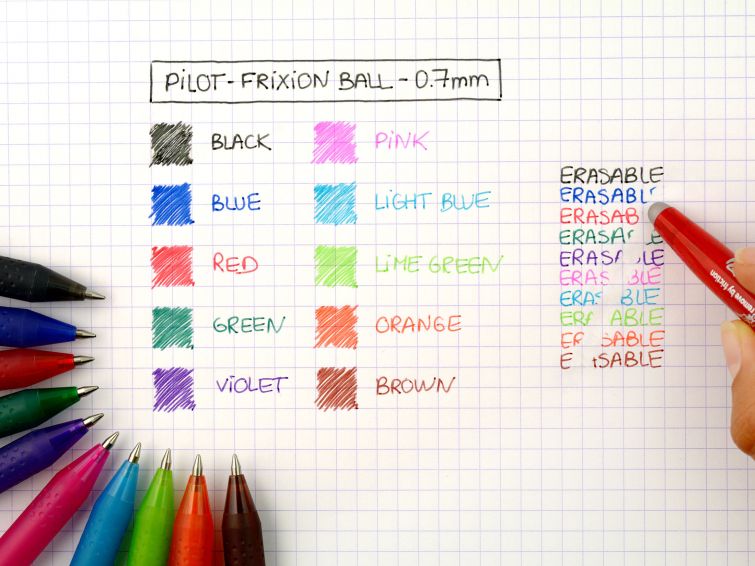 PILOT-FRIXION BALL - 0.7mm
BLACK
BLUE
RED
GREEN
VIOLET
PINK
LIGHT BLUE
LIME GREEN
ORANGE
BROWN
ERASABLE
ERASABL
ERASAB
ERASA E
ERASA LE
ERAS BLE
ERAS BLE
ER ABLE
ER SABLE
E SABLE
remove by friction